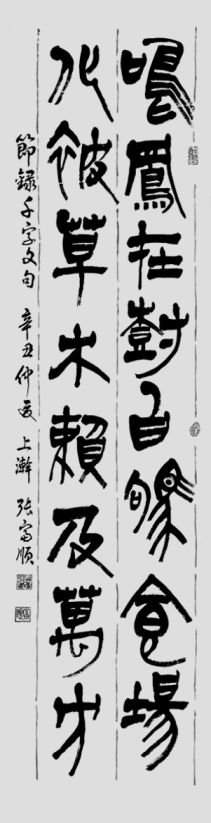 鳴鳳在樹白駒食場
化被草木賴及萬方
節錄千字文句 辛丑仲夏上澣 張富順